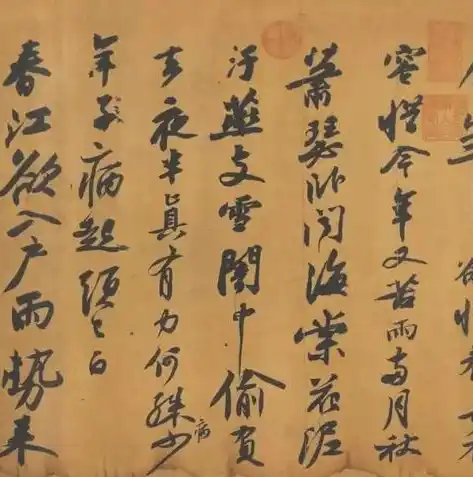 欲惜
容惜今年又苦雨兩月秋
蕭瑟臥聞海棠花泥
汙燕支雪闇中偷負
去夜半真有力何殊病少
年子病起頭已白
春江欲入戶雨勢來